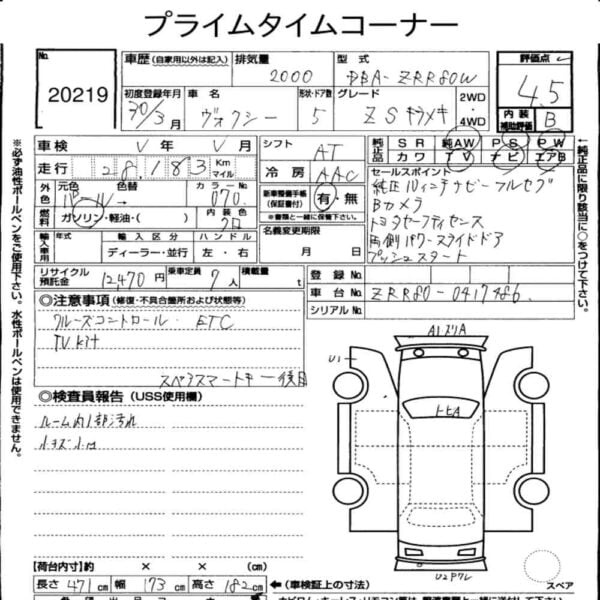 プライムタイムコーナー
No. 20219
車歴 (自家用以外は記入) 排気量 2000 型式 DBA-ZRR80W
初度登録年月 30/3月 車名 ヴォクシー 形状・ドア数 5 グレード ZSキラメキ 2WD・4WD
評価点 4.5
内装補助評価 B
車検 年 月 シフト AT
走行 28,183 Km マイル 冷房 AAC
純正品 SR 純AW PS PW
カワ TV ナビ エアB
外色 元色 パール 色替 カラーNo. 070
新車整備手帳(保証書付) 有・無
※書類と一緒に保管下さい。
燃料 ガソリン・軽油・( ) 内装色 クロ
名義変更期限 月 日
輸入車用 年式 輸入区分 ディーラー・並行 ハンドル 左・右
セールスポイント
純正10インチナビ フルセグ
Bカメラ
トヨタセーフティセンス
両側パワースライドドア
プッシュスタート
リサイクル預託金 12,470円 乗車定員 7人 積載量 t
登録No.
車台No. ZRR80-0417486
シリアルNo.
◎注意事項 (修復・不具合箇所および状態等)
クルーズコントロール・ETC
TVキット
スペアスマートキー 後日
◎検査員報告 (USS使用欄)
ルーム内1部汚れ
小キズ・小凹
A1スリA
U1
トヒA
U2ワレ
スペア
【荷台内寸】約 × × (cm)
長さ 471cm 幅 173cm 高さ 182cm ←(車検証上の寸法)
※必ず油性ボールペンをご使用下さい。水性ボールペンは使用できません。
←純正品に限り該当に○をつけて下さい。